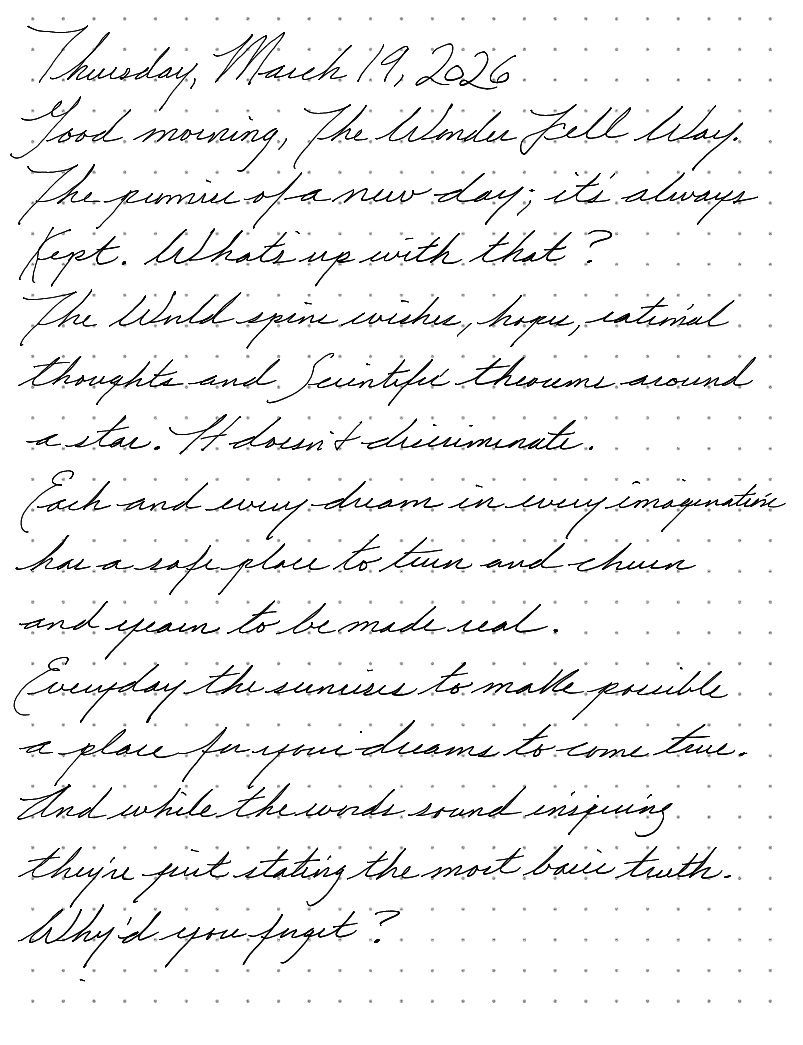 Thursday, March 19, 2026
Good morning, The Wonder Fell Way.
The promise of a new day; it's always
Kept. What's up with that?
The World spins wishes, hopes, rational
thoughts and Scientific theorems around
a star. It doesn't discriminate.
Each and every dream in every imagination
has a safe place to turn and churn
and yearn to be made real.
Everyday the sunrises to make possible
a place for your dreams to come true.
And while the words sound inspiring
they're just stating the most basic truth.
Why'd you forget?